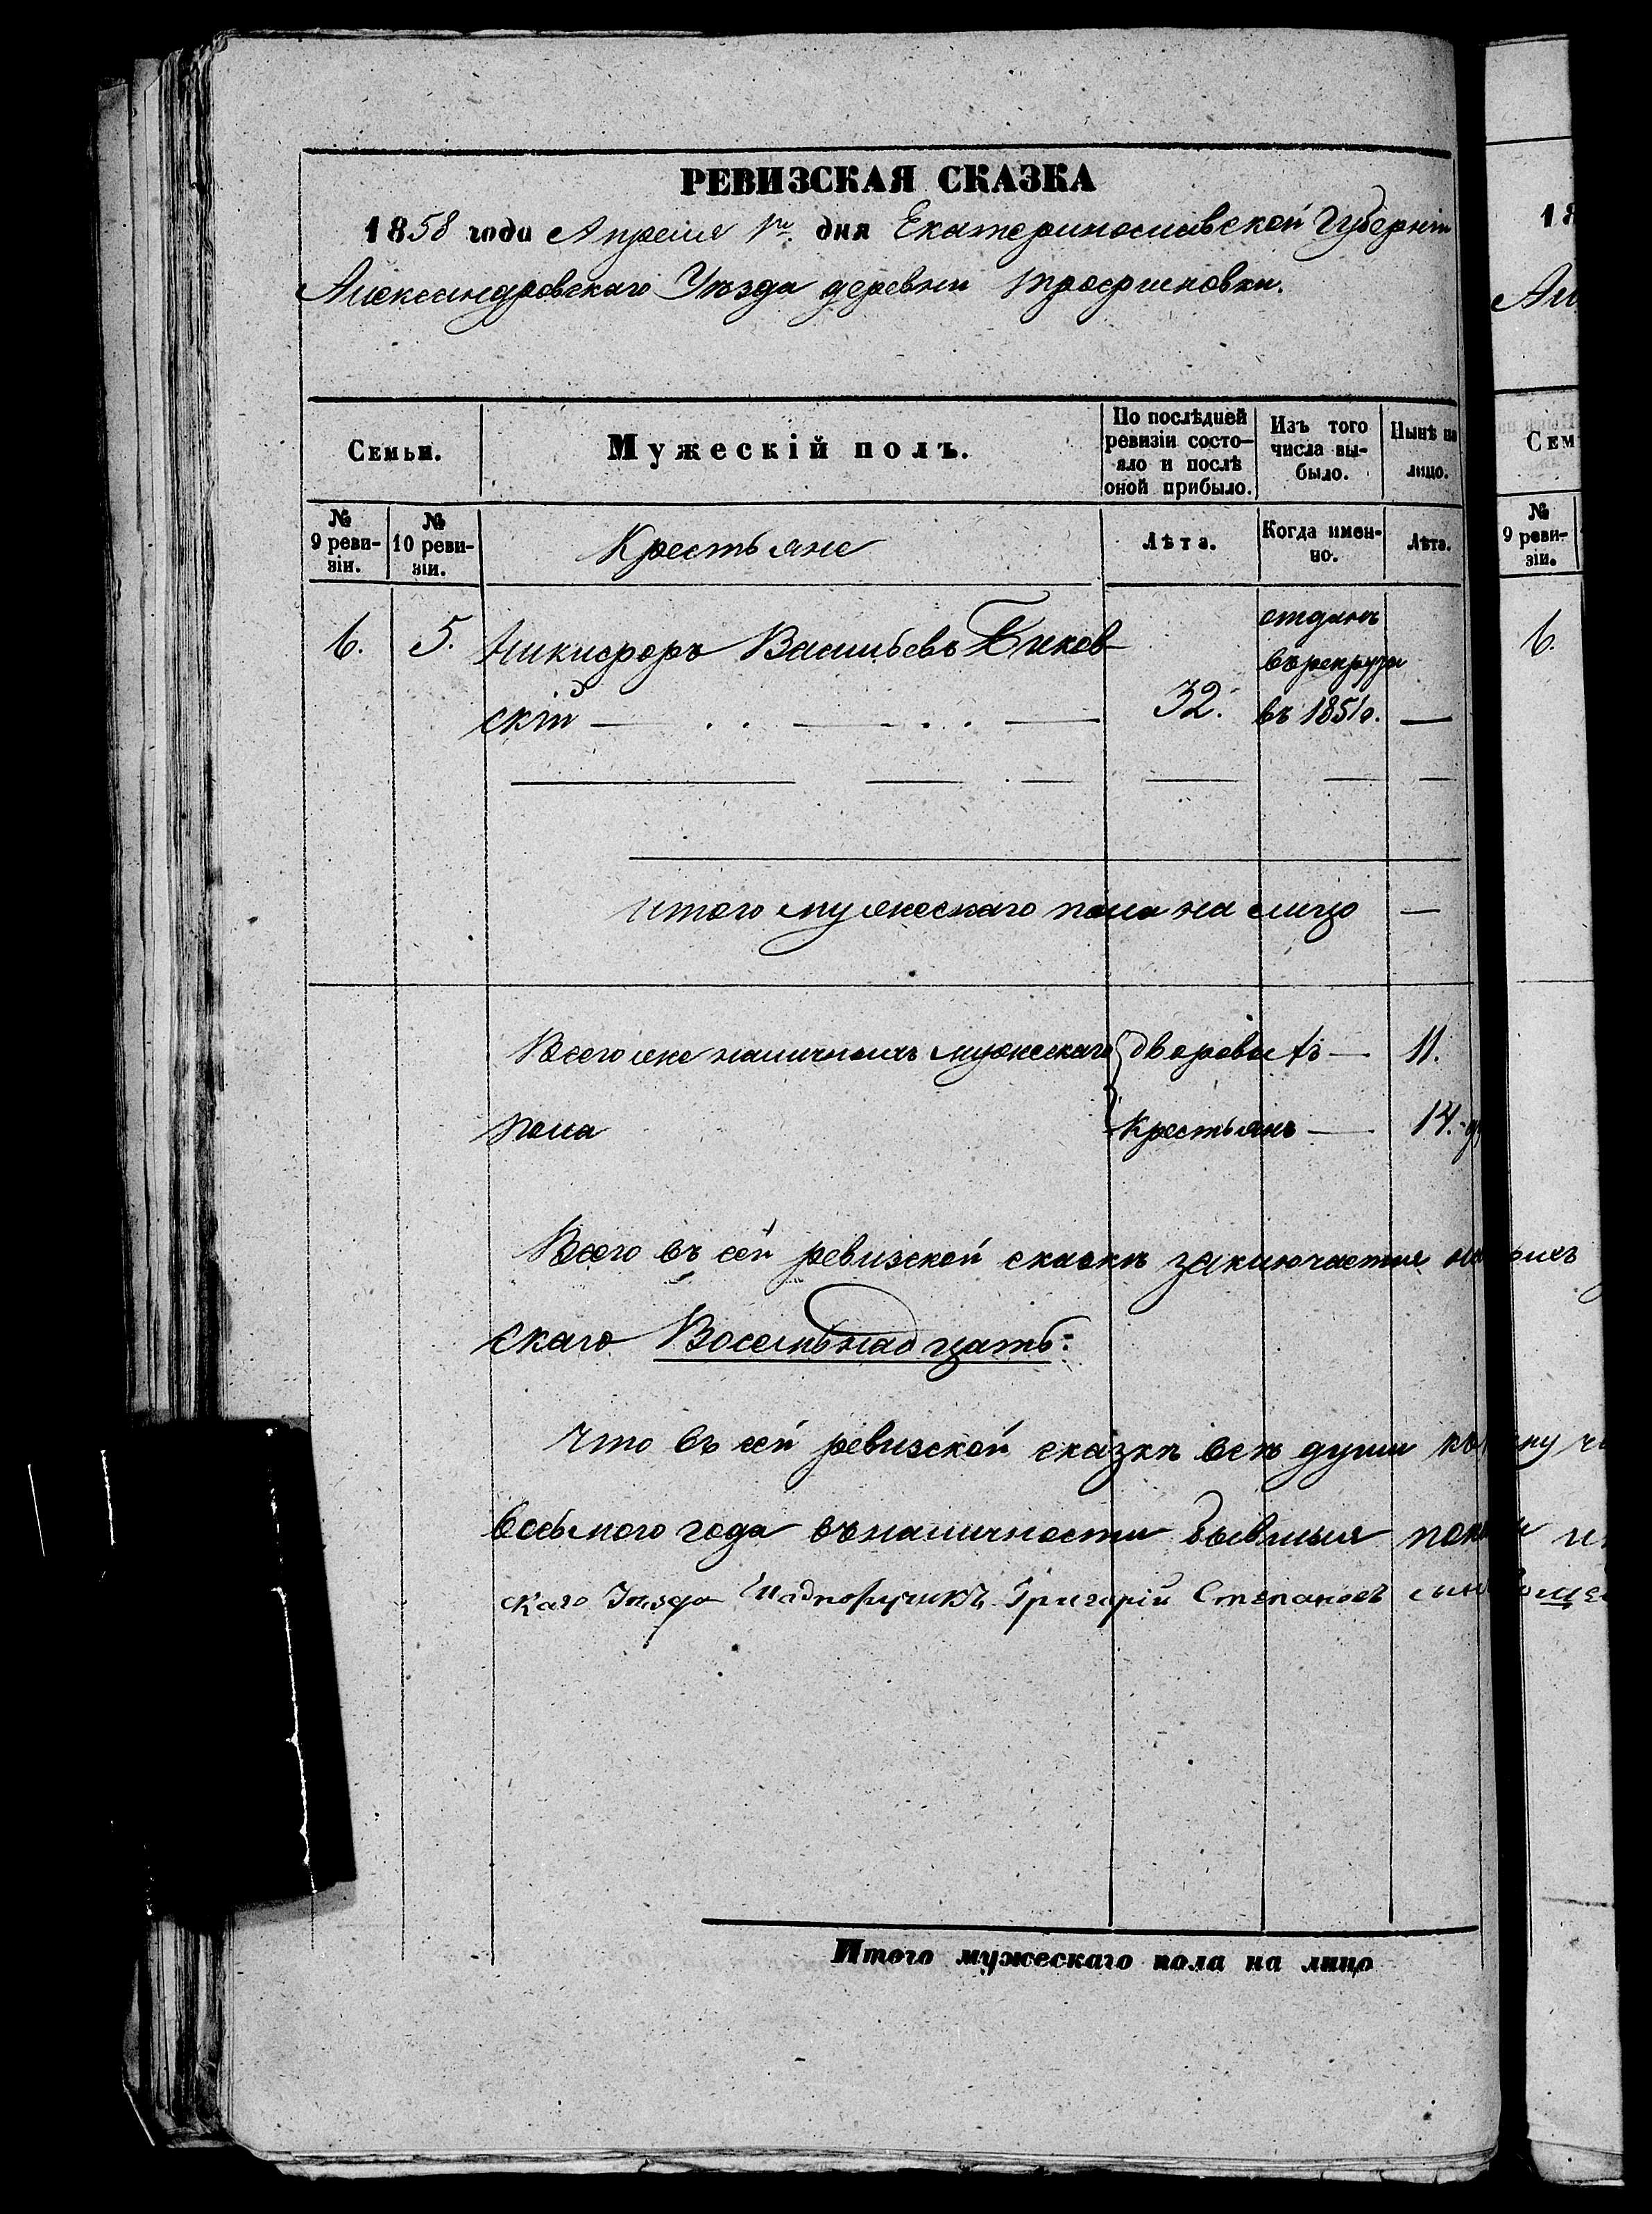 РЕВИЗСКАЯ СКАЗКА
1858 года Апреля 1го дня Екатеринославской Губерніи
Александровскаго Уѣзда деревни Трофимовки.
Семьи.
Мужескій полъ.
По послѣдней ревизіи состо-
яло и послѣ оной прибыло.
Изъ того числа вы-
было.
Нынѣ на лицо.
№ 9 реви-
зіи.
№ 10 реви-
зіи.
Крестьяне
Лѣта.
Когда имен-
но.
Лѣта.
6. 5. Никифоръ Васильевъ Биков-
скій — . . — . . — 32. —
отданъ
въ рекруты
въ 185 г.
итого мужескаго пола на лицо —
Всего же наличныхъ мужескаго
пола
дворовыхъ — 11.
крестьянъ — 14.
Всего въ сей ревизской сказкѣ заключается
скаго Восемьнадцать:
Что въ сей ревизской сказкѣ всѣ души
восьмого года въ наличности бывшыя
скаго Уѣзда Подпоручикъ Григорій Степановъ сынъ
Итого мужескаго пола на лицо
18
Ал
Сем
№
9 реви-
зіи.
6.